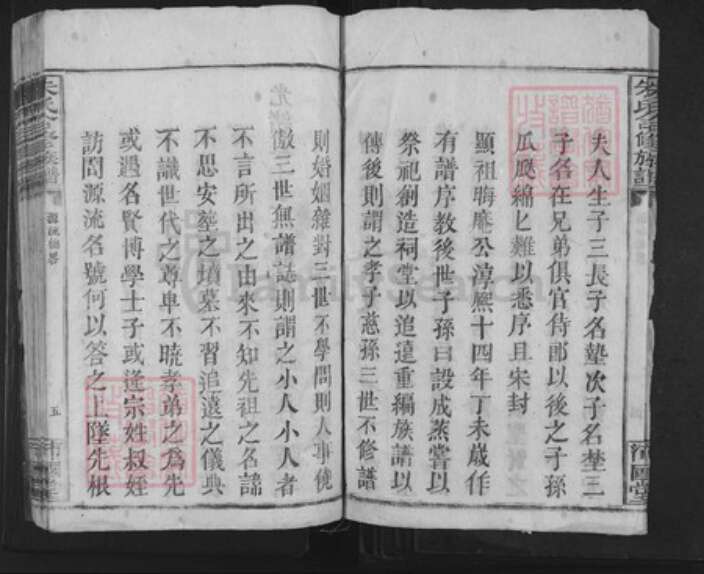 夫人生子三長子名塾次子名埜三
子名在兄弟俱官侍郎以後之子孫
瓜瓞綿匕難以悉序且宋封
顯祖晦庵公淳熙十四年丁未歲作
有譜序教後世子孫曰設成蒸嘗以
祭祀創造祠堂以追遠重編族譜以
傳後則謂之孝子慈孫三世不修譜
則婚姻雜對三世不學問則人事僥
倣三世無譜誌則謂之小人小人者
不言所出之由來不知先祖之名諱
不思安塟之墳墓不習追遠之儀典
不識世代之尊卑不曉孝弟之為先
或遇名賢博學士子或逢宗姓叔姪
訪問源流名號何以答之上墜先根
源流總畧
五
沛國堂